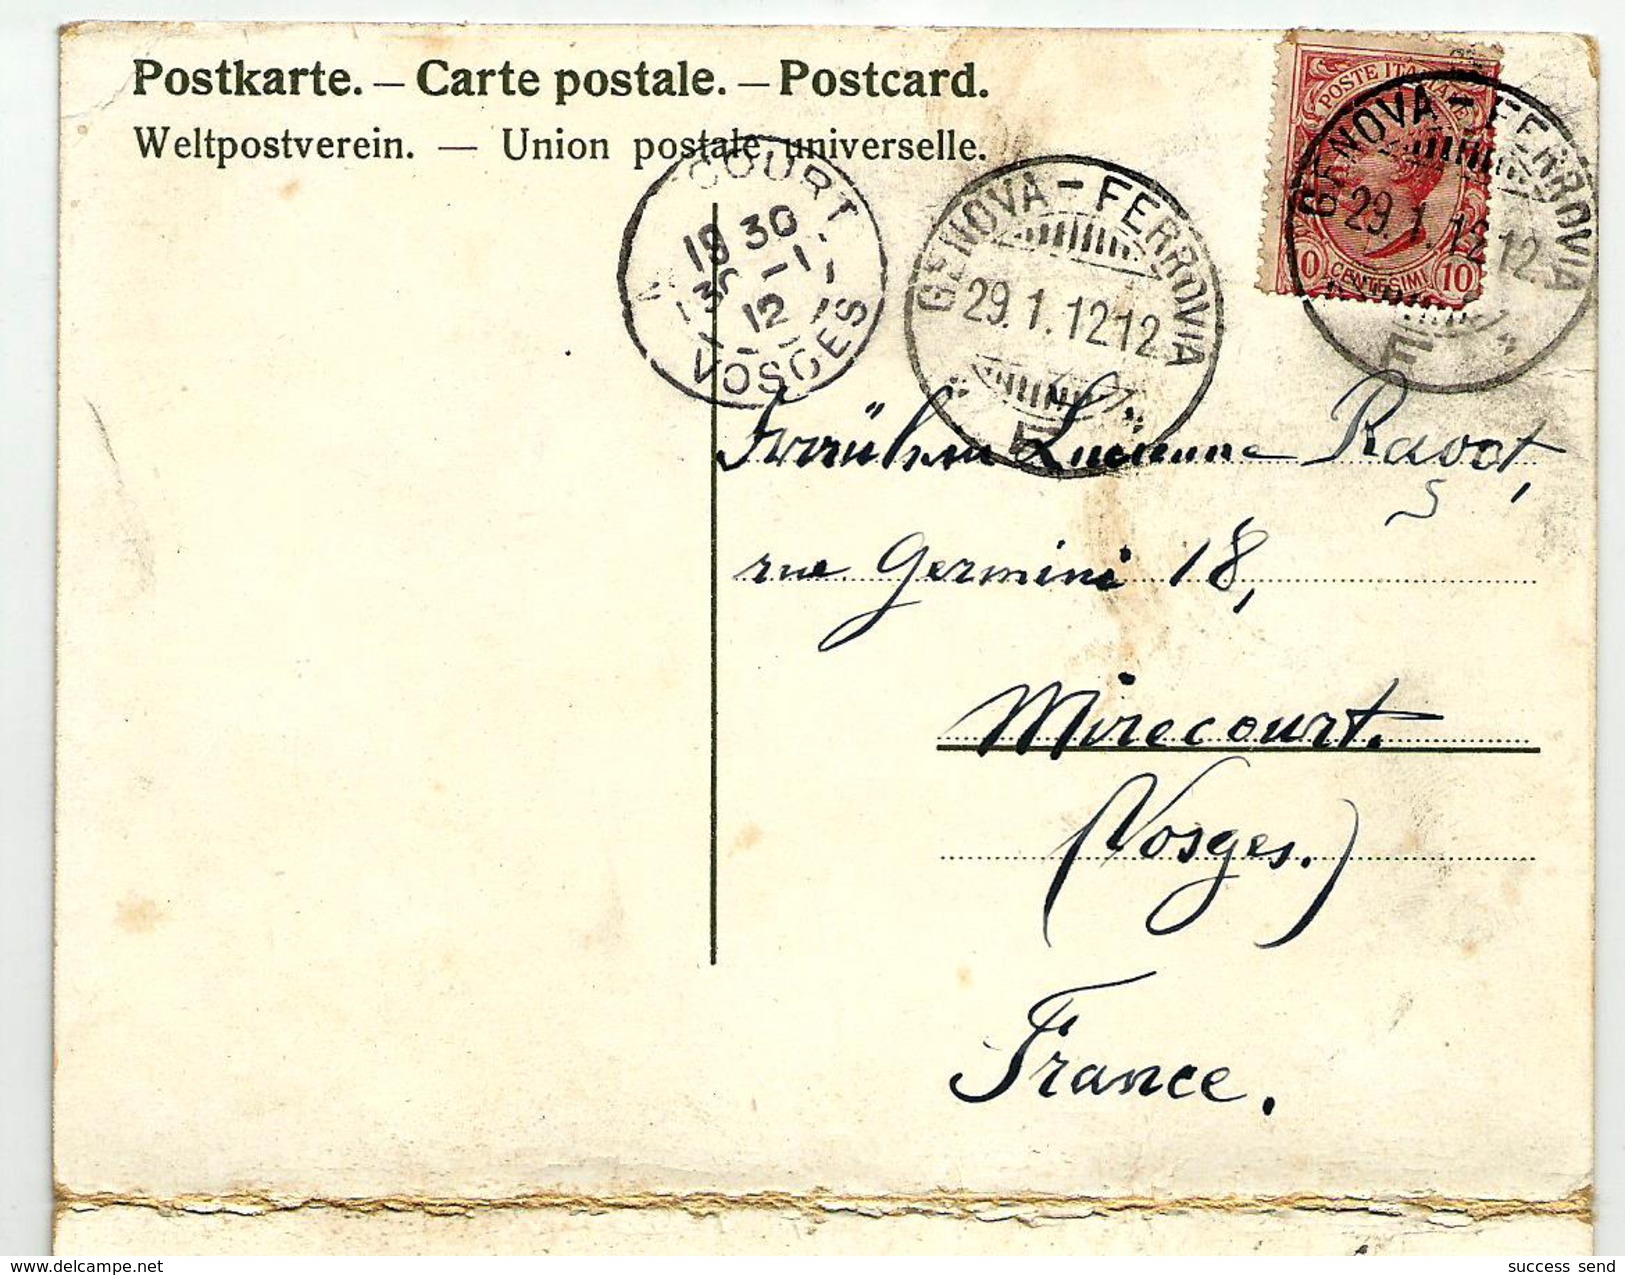 Postkarte. – Carte postale. – Postcard.
Weltpostverein. — Union postale universelle.
COURT
VOSGES
GENOVA - FERROVIA
29.1.12 12
POSTE ITALIANE
CENTESIMI 10
GENOVA - FERROVIA
29.1.12 12
Lucienne Ravot,
rue Germini 18,
Mirecourt.
(Vosges.)
France.
delcampe.net
success send